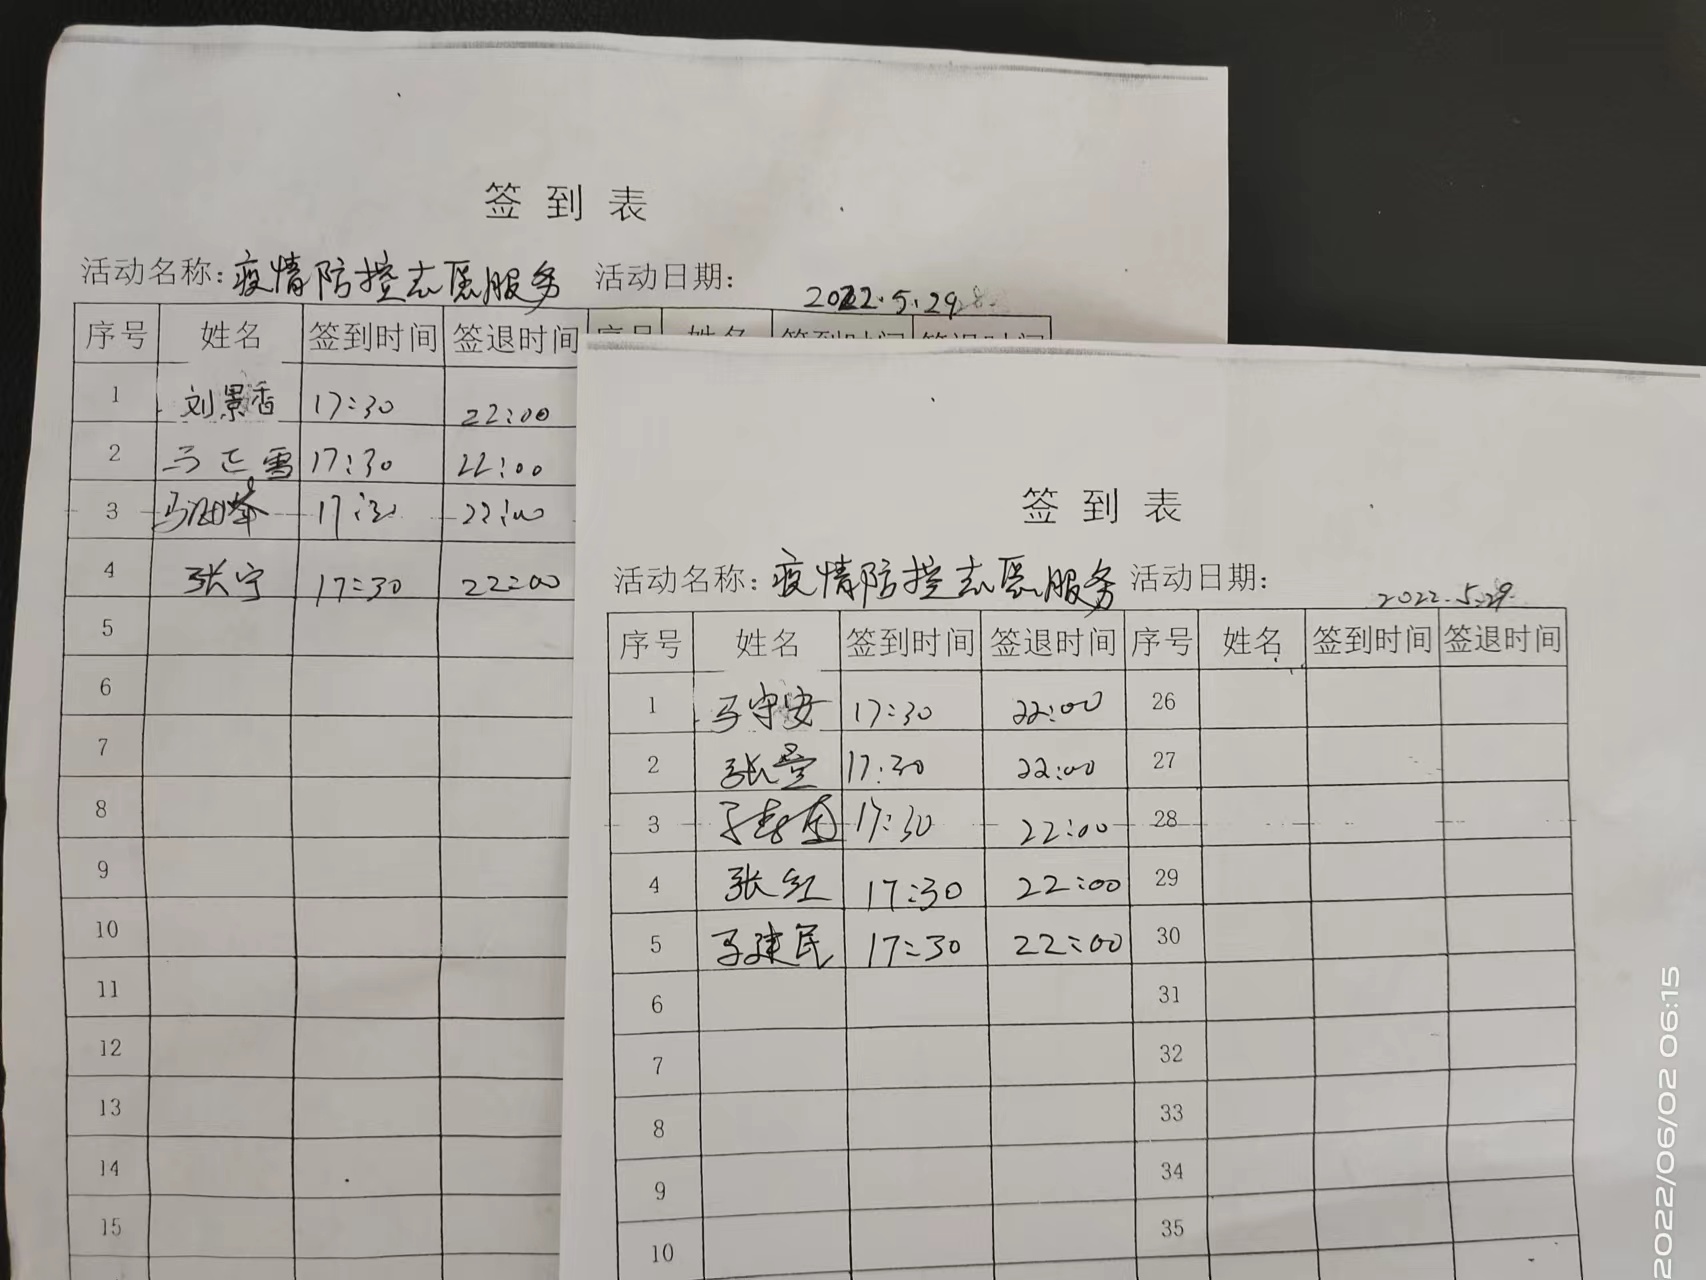 签到表
活动名称:疫情防控志愿服务 活动日期: 2022.5.29
序号 姓名 签到时间 签退时间 序号 姓名 签到时间 签退时间
1 刘景香 17:30 22:00
2 马雪 17:30 22:00
3 马 17:30 22:00
4 张宁 17:30 22:00
5
6
7
8
9
10
11
12
13
14
15
签到表
活动名称:疫情防控志愿服务 活动日期: 2022.5.29
序号 姓名 签到时间 签退时间 序号 姓名 签到时间 签退时间
1 马守安 17:30 22:00 26
2 张 17:30 22:00 27
3 17:30 22:00 28
4 张红 17:30 22:00 29
5 马建民 17:30 22:00 30
6 31
7 32
8 33
9 34
10 35
2022/06/02 06:15